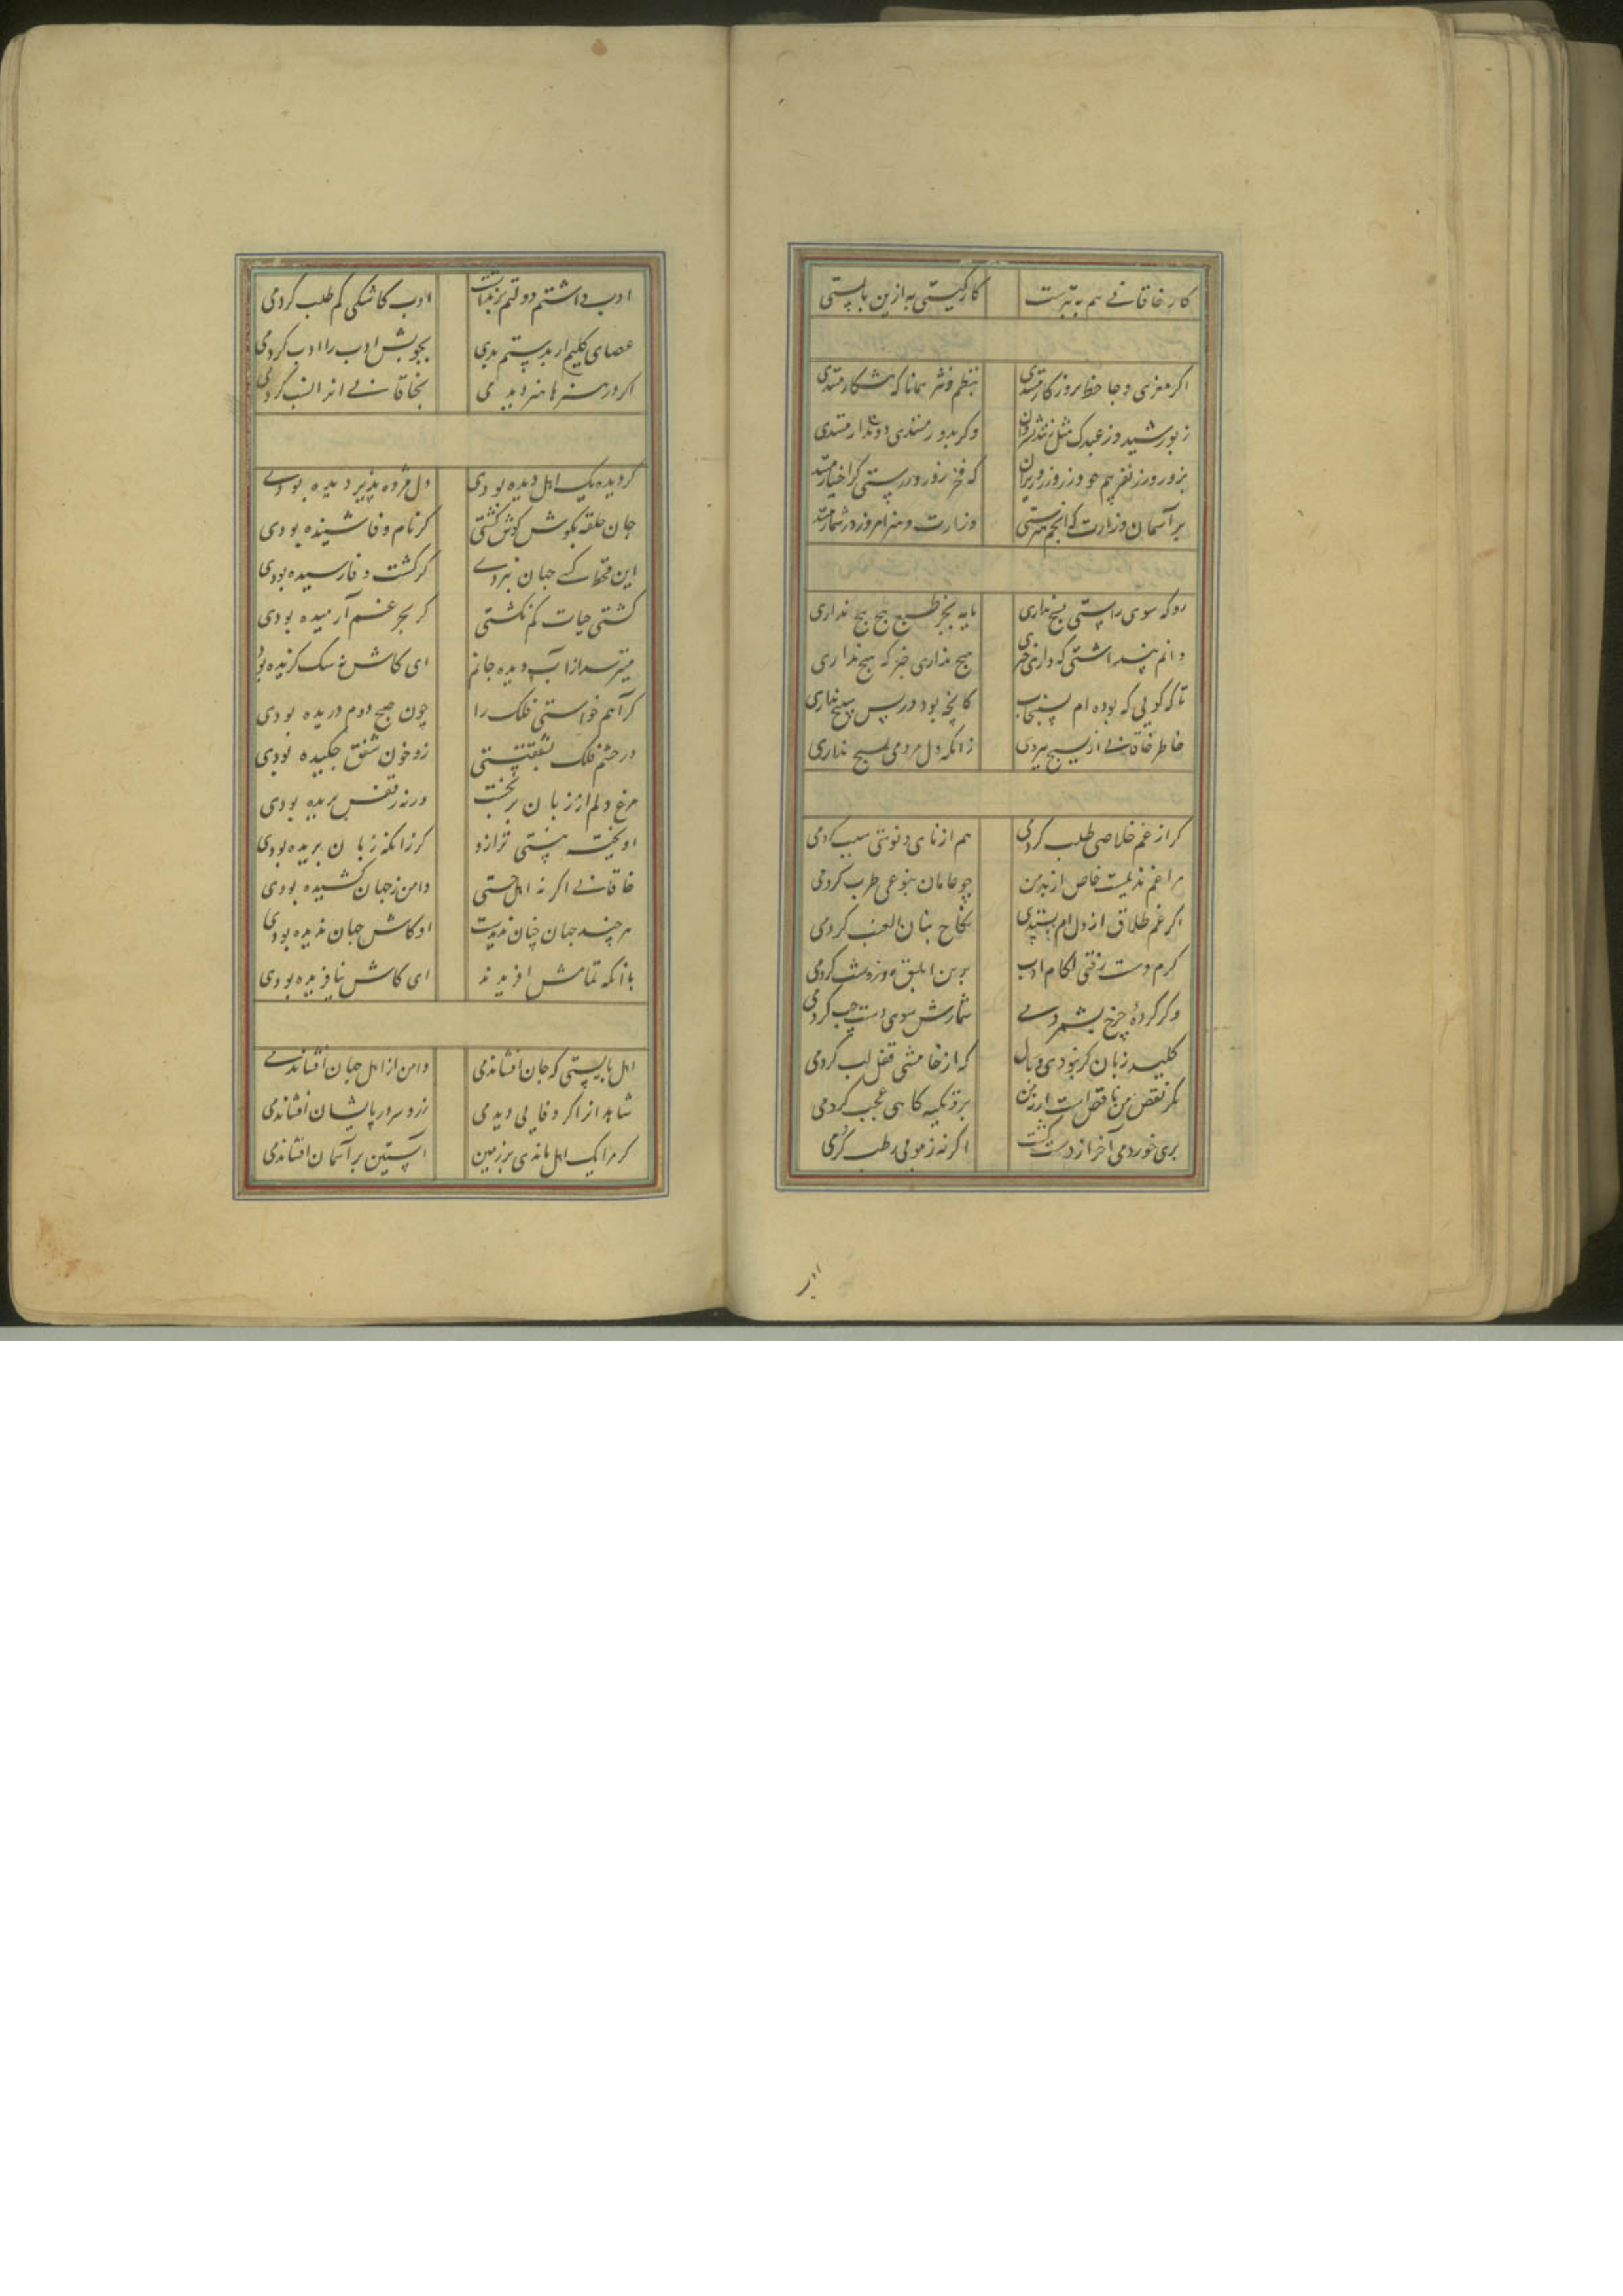 کار خاقانی هم به تبرست کار گیتی به ازین بایستی
اکر معزی و جاحظ بروزکار مندی بنظم و نثر همانا که پیشکار مندی
ز بو رشید و ز عبدک مثل زدند وکر بدور مندی دوتدار مندی
بزور و زر نفریبم چو وزر وزر وزیران که فخر زور و زرستی کرا اختیار مندی
بر آسمان وزارت که انجم هنرستی وزارت و هنر امروز در شمار مندی
رو که سوی راستی بسیچ نداری مایه بجز طبع پیچ پیچ نداری
دانم پنداشتی که داری چیزی هیچ نداری خبر که هیچ نداری
تا که کویی که بوده ام بسنجاب کانچه بود در پس بسیچ نداری
خاطر خاقانی از بسیچ ببردی زانکه دل مردمی بسیچ نداری
کر از غم خلاصی طلب کردمی هم از نای و نوشی سبب کردمی
مرا غم ندیمیست خاص ار نه من چو عامان بنوعی طرب کردمی
اکر غم طلاق از دلم بستدی نکاح بنات العنب کردمی
کرم دست رفتی لکام ادب برین ابلق روز و شب کردمی
وکر کردهٔ چرخ بشمردمی شمارش سوی دست چپ کردمی
کلید زبان کر نبودی وبال که از خامشی قفل لب کردمی
مکر نقص من ناقص است ار نه من برو تکیه کاهی عجب کردمی
بری خوردمی آخر از دست کشت اکر نه ز مویی رطب کردمی
ادب
ادب داشتم دولتم بر نداشت ادب کاشکی کم طلب کردمی
عصای کلیم ار بدستم بدی بچوبش ادب را ادب کردمی
اکر در هنرها هنر دیدمی بخاقانی آنرا نسب کردمی
کر دیده یک اهل دیده بودی دل مژده پذیر دیده بودی
جان حلقه بکوش کوش کشتی کر نام وفا شنیده بودی
این قحط کی جهان نبردی کر کشت وفا رسیده بودی
کشتی حیات کم نکشتی کر بحر غم آرمیده بودی
میترسد از آب دیده جانم ای کاش نه سک کزیده بودی
کر آهم خواستی فلک را چون صبح دوم دریده بودی
در چشم فلک شفقتستی زو خون شفق چکیده بودی
مرغ دلم از زبان برنجست ورنه ز قفس پریده بودی
اویخته نیستی ترازو کر زانکه زبان بریده بودی
خاقانی اکر نه اهل جستی دامن ز جهان کشیده بودی
هر چند جهان چنان ندیدست او کاش جهان ندیده بودی
با آنکه تمامش افریدند ای کاش نیافریده بودی
اهل بایستی که جان افشاندمی دامن از اهل جهان افشاندمی
شاهد ار اکر وفایی دیدمی زر و سر در پایشان افشاندمی
کر مرا یک اهل ماندی بر زمین آستین بر آسمان افشاندمی